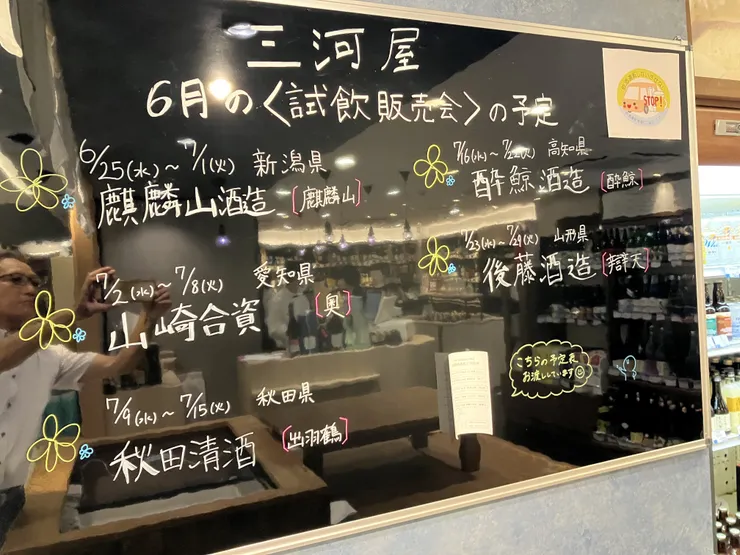 三河屋
6月の〈試飲販売会〉の予定
6/25(水)～7/1(火) 新潟県
麒麟山酒造 [麒麟山]
7/2(水)～7/8(火) 愛知県
山崎合資 [奥]
7/9(水)～7/15(火) 秋田県
秋田清酒 [出羽鶴]
7/16(水)～7/22(火) 高知県
酔鯨酒造 [酔鯨]
7/23(水)～7/29(火) 山形県
後藤酒造 [辯天]
こちらの予定表
お渡ししています
STOP!